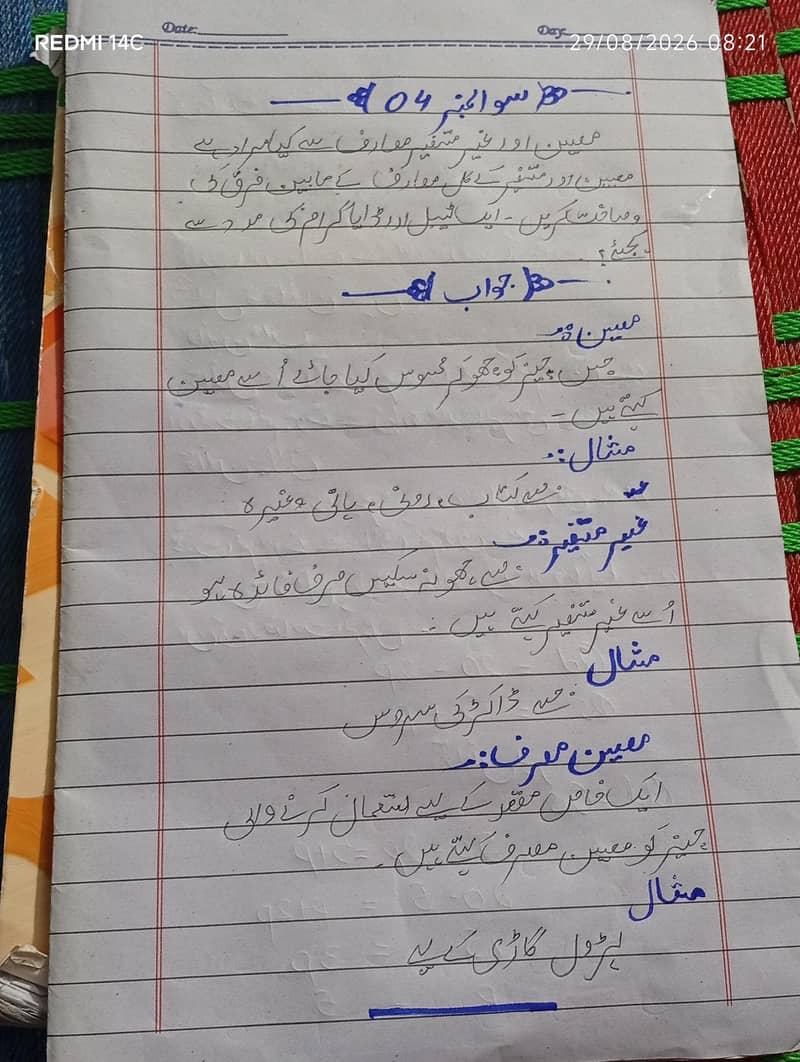 Date:
Day:
REDMI 14C
29/08/2026 08:21
سوال نمبر 04
معین اور غیر متغیر مصارف سے کیا مراد ہے
معین اور متغیر کے کل مصارف کے مابین فرق کی
وضاحت کریں - ایک ٹیبل اور ڈایاگرام کی مدد سے
کیجئے؟
جواب
معین:
جس چیز کو چھو کر محسوس کیا جائے اُسے معین
کہتے ہیں -
مثال:
جیسے کتاب، روٹی، پانی وغیرہ
غیر متغیر:
جسے چھو نہ سکیں صرف فائدہ ہو
اُسے غیر متغیر کہتے ہیں -
مثال
جیسے ڈاکٹر کی سروس
معین صرف:
ایک خاص مقصد کے لیے استعمال کرنے والی
چیز کو معین مصرف کہتے ہیں -
مثال
پٹرول گاڑی کے لیے